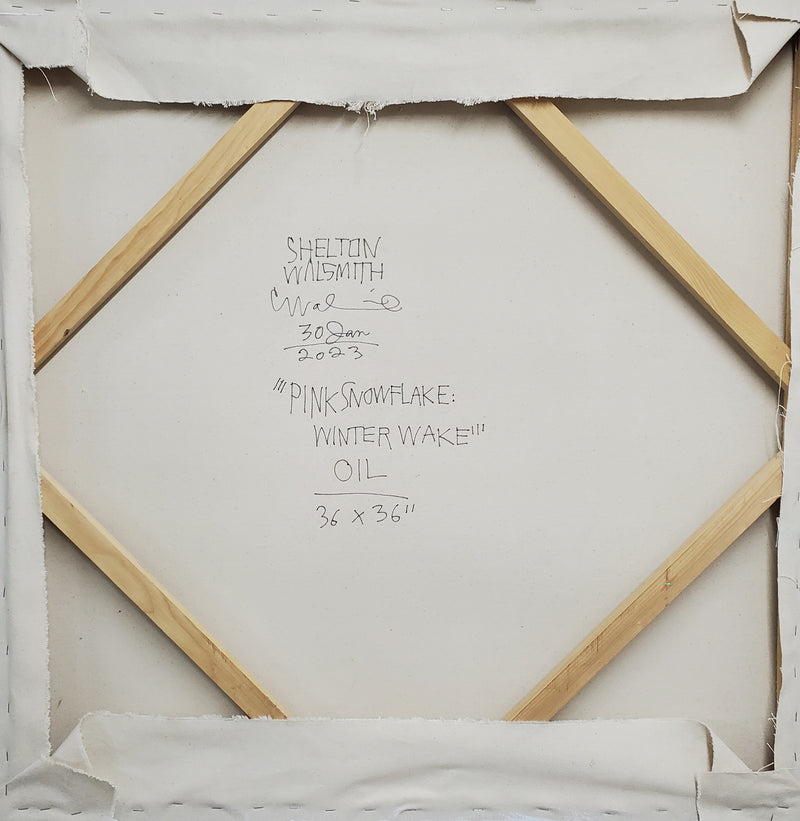 SHELTON
WALSMITH
30 Jan
2023
"'PINK SNOWFLAKE:
WINTER WAKE'"
OIL
36 x 36"